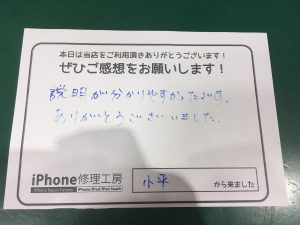 本日は当店をご利用頂きありがとうございます！
ぜひご感想をお願いします！
説明が分かりやすかったです。
ありがとうございました。
iPhone修理工房
iPhone Repair Factory
iPhone/iPad/iPod touch
小平
から来ました